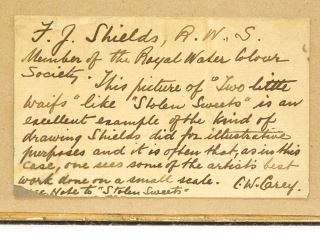 F. J. Shields, R. W. S.
Member of the Royal Water Colour
Society. This picture of "Two little
waifs" like "Stolen Sweets" is an
excellent example of the kind of
drawing Shields did for illustrative
purposes and it is often that, as in this
case, one sees some of the artist's best
work done on a small scale. C. W. Carey.
see Note to "Stolen Sweets"